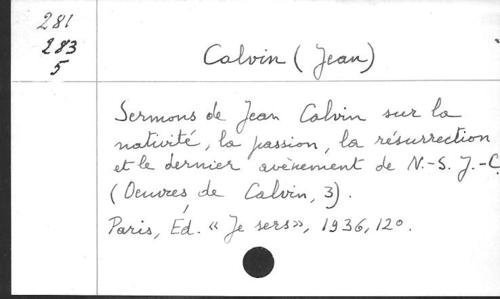 281
283
5
Calvin (Jean)
Sermons de Jean Calvin sur la
nativité, la passion, la résurrection
et le dernier avènement de N.-S. J.-C.
(Oeuvres de Calvin, 3).
Paris, Éd. « Je sers », 1936, 12o.